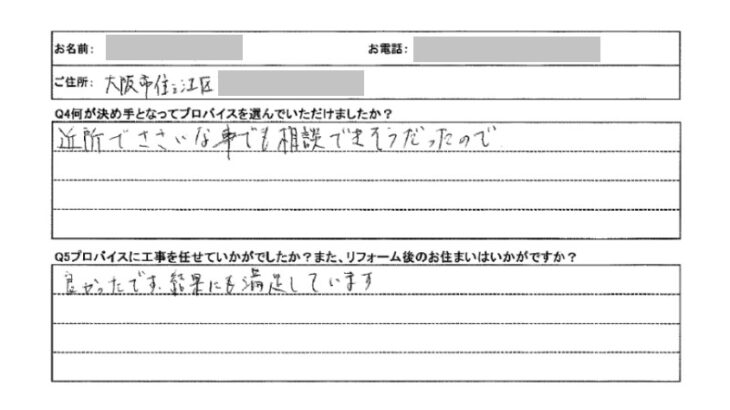 お名前： お電話：
ご住所： 大阪市住之江区
Q4何が決め手となってプロバイスを選んでいただけましたか？
近所でささいな事でも相談できそうだったので
Q5プロバイスに工事を任せていかがでしたか？また、リフォーム後のお住まいはいかがですか？
良かったです。結果にも満足しています